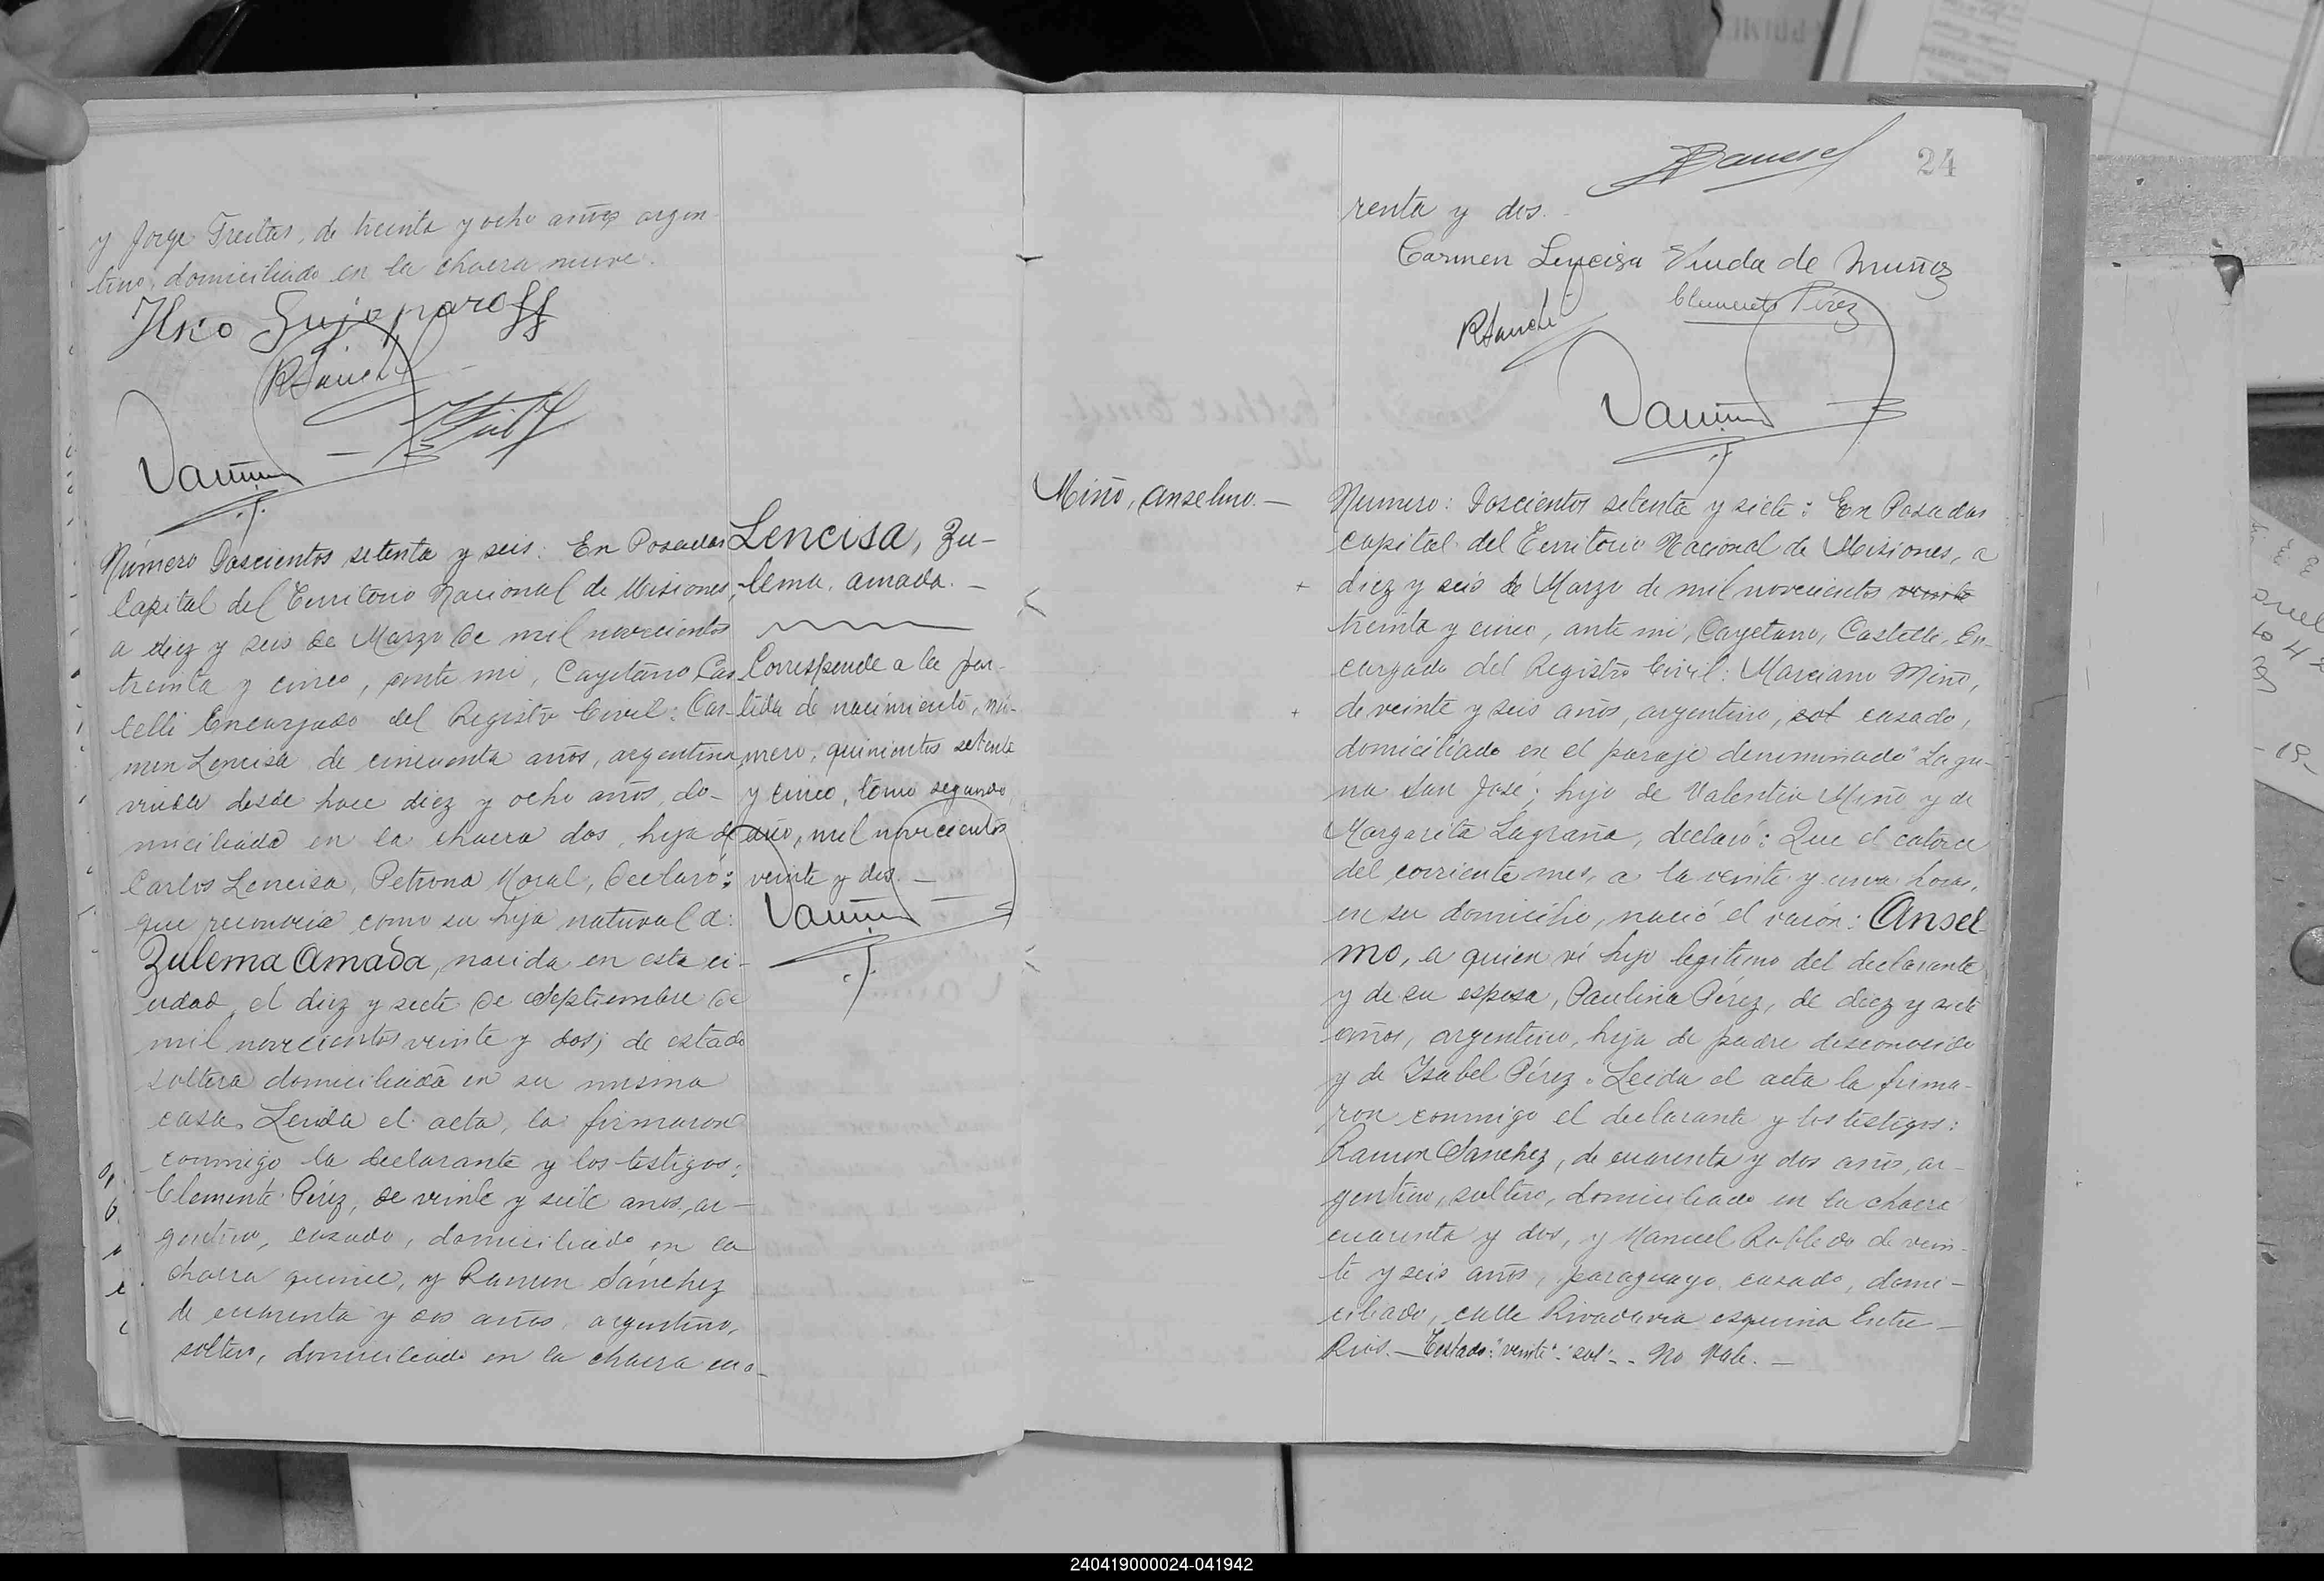 y Jorge Freitas, de treinta y ocho años argen-
tino, domiciliado en la chacra nueve.
Número Doscientos setenta y seis: En Posadas
Capital del Territorio Nacional de Misiones,
a diez y seis de Marzo de mil novecientos
treinta y cinco, ante mi, Cayetano Cas
telli Encargado del Registro Civil: Car-
men Lencisa de cincuenta años, argentina,
viuda desde hace diez y ocho años, do-
miciliada en la chacra dos, hija de
Carlos Lencisa, Petrona Moral, declaró:
que reconocia como su hija natural a:
Zulema Amada, nacida en esta ci-
udad, el diez y siete de Septiembre de
mil novecientos veinte y dos; de estado
soltera domiciliada en su misma
casa. Leida el acta, la firmaron
conmigo la declarante y los testigos:
Clemente Pérez, de veinte y siete anos, ar-
gentino, casado, domiciliado en la
chacra quince, y Ramon Sánchez
de cuarenta y dos años, argentino,
soltero, domiciliado en la chacra cua-
Lencisa, Zu-
lema, amada. -
Corresponde a la par-
tida de nacimiento, nú-
mero, quinientos setenta
y cinco, tomo segundo,
año, mil novecientos
veinte y dos. -
24
renta y dos. -
Carmen Lencisa Viuda de Muñoz
Clemente Pérez
Miño, Anselmo. -
Numero: Doscientos setenta y siete: En Posadas
capital del Territorio Nacional de Misiones, a
+ diez y seis de Marzo de mil novecientos veinte
treinta y cinco, ante mi, Cayetano, Castelli, En-
cargado del Registro Civil: Marciano Miño,
+ de veinte y seis años, argentino, sol casado,
domiciliado en el paraje denominado "Lagu-
na San José"; hijo de Valentin Miño y de
Margarita Lagraña, declaró: Que el catorce
del corriente mes, a la veinte y una horas,
en su domicilio, nació el varón: Ansel
mo, a quien vi hijo legitimo del declarante
y de su esposa, Paulina Pérez, de diez y siete
años, argentina, hija de padre desconocido
y de Isabel Pérez. Leida el acta la firma-
ron conmigo el declarante y los testigos:
Ramon Sanchez, de cuarenta y dos años, ar-
gentino, soltero, domiciliado en la chacra
cuarenta y dos, y Manuel Robledo de vein-
te y seis años, paraguayo, casado, domi-
ciliado, calle Rivadavia esquina Entre
Rios. - Testado: "veinte" - "sol" - . No Vale. -
240419000024-041942